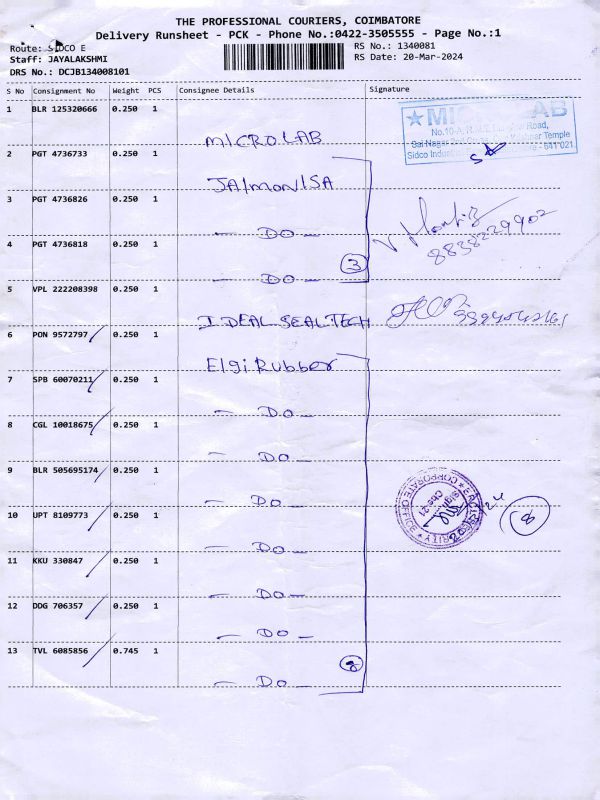 THE PROFESSIONAL COURIERS, COIMBATORE
Delivery Runsheet - PCK - Phone No.:0422-3505555 - Page No.:1
Route: SIDCO E
RS No.: 1340081
Staff: JAYALAKSHMI
RS Date: 20-Mar-2024
DRS No.: DCJB134008101
S No Consignment No Weight PCS Consignee Details Signature
1 BLR 125320666 0.250 1
MICRO LAB
No.10-A, Road,
Sai Nagar Temple
Sidco Indust 641 021
2 PGT 4736733 0.250 1
JAImonISA
3 PGT 4736826 0.250 1
- DO -
4 PGT 4736818 0.250 1
- DO -
3
8838229902
5 VPL 222208398 0.250 1
IDEAL SEAL TECH
6 PON 9572797 0.250 1
Elgi Rubber
7 SPB 60070211 0.250 1
- DO -
8 CGL 10018675 0.250 1
- DO -
9 BLR 505695174 0.250 1
- DO -
10 UPT 8109773 0.250 1
- DO -
8
11 KKU 330847 0.250 1
- DO -
12 DDG 706357 0.250 1
- DO -
13 TVL 6085856 0.745 1
- DO -
8